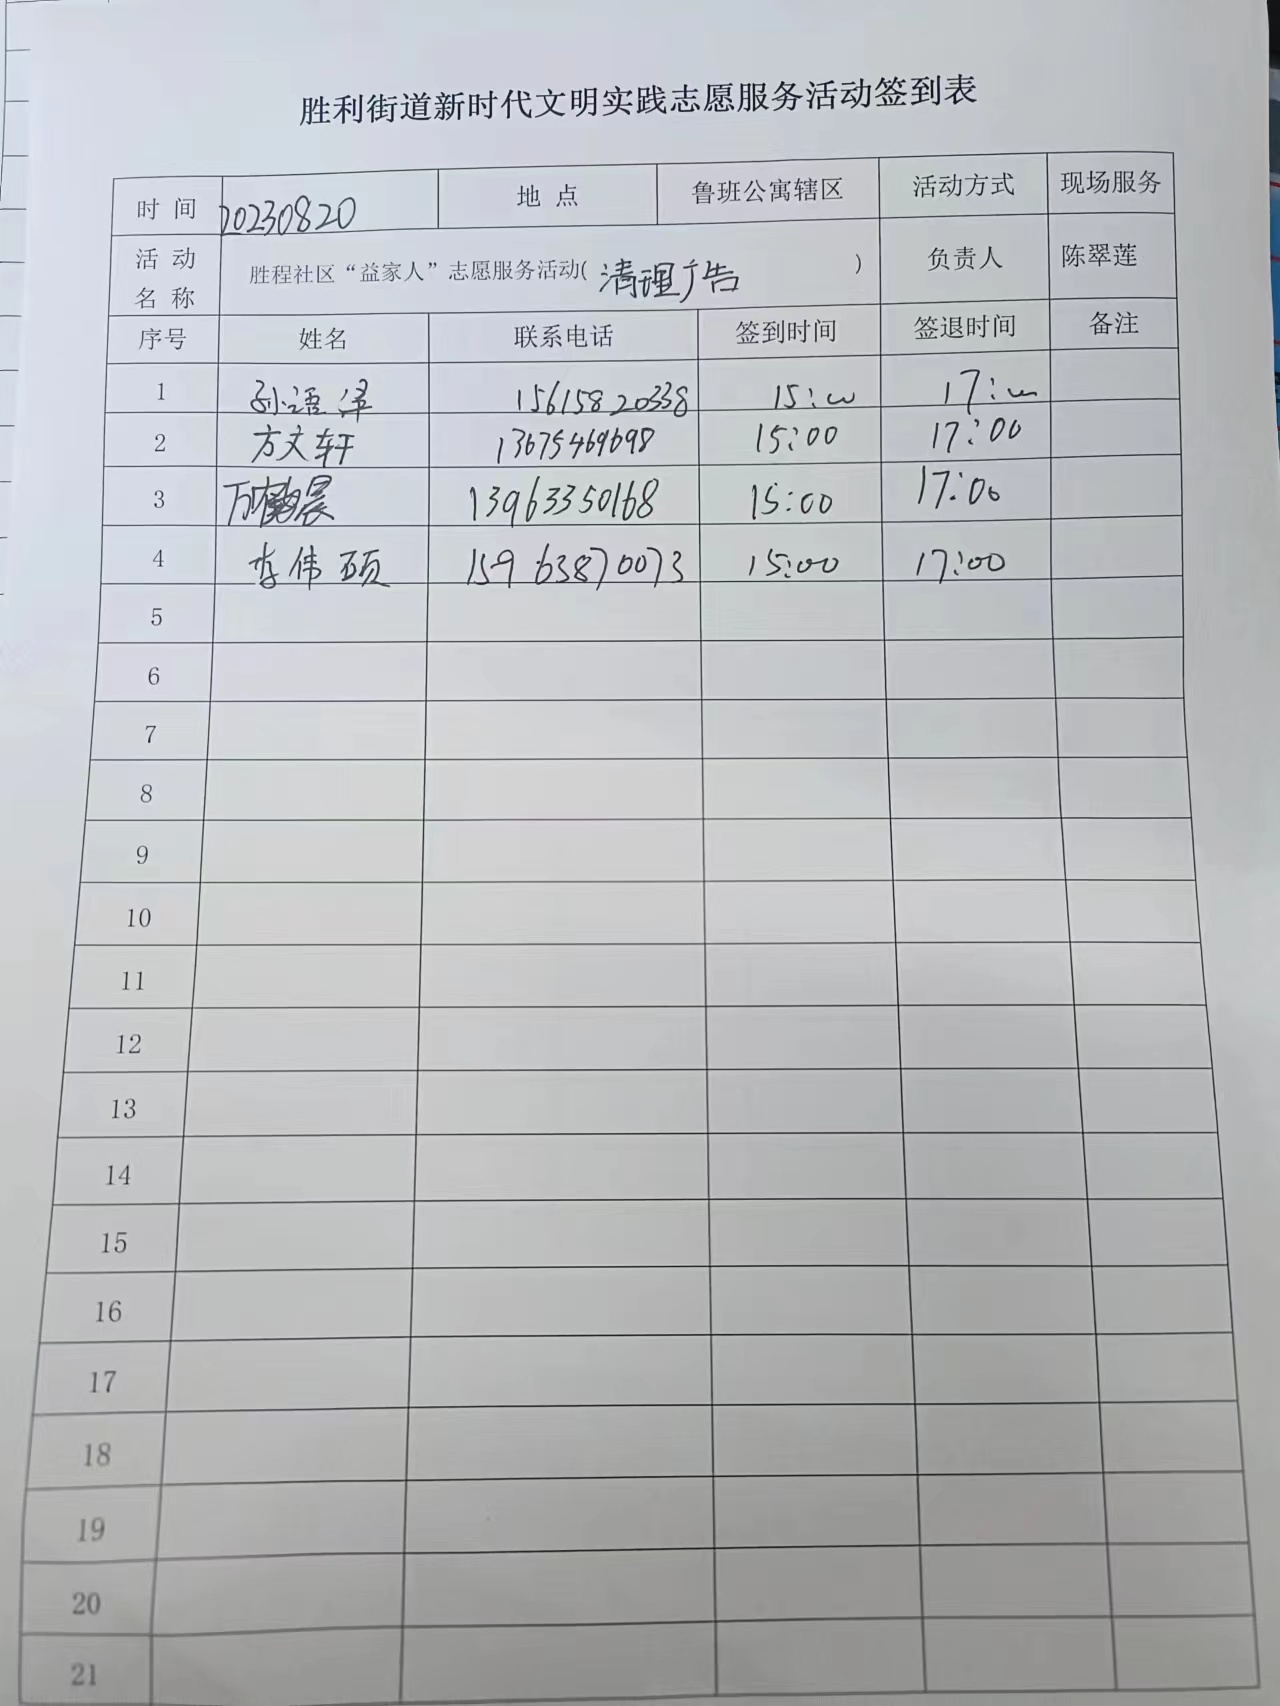 胜利街道新时代文明实践志愿服务活动签到表
时 间 20230820 地 点 鲁班公寓辖区 活动方式 现场服务
活 动 名 称 胜程社区“益家人”志愿服务活动( 清理广告 ) 负责人 陈翠莲
序号 姓名 联系电话 签到时间 签退时间 备注
1 孙语泽 15615820338 15:00 17:00
2 方文轩 13675469698 15:00 17:00
3 万 晨 13963350168 15:00 17:00
4 李伟硕 15963870073 15:00 17:00
5
6
7
8
9
10
11
12
13
14
15
16
17
18
19
20
21